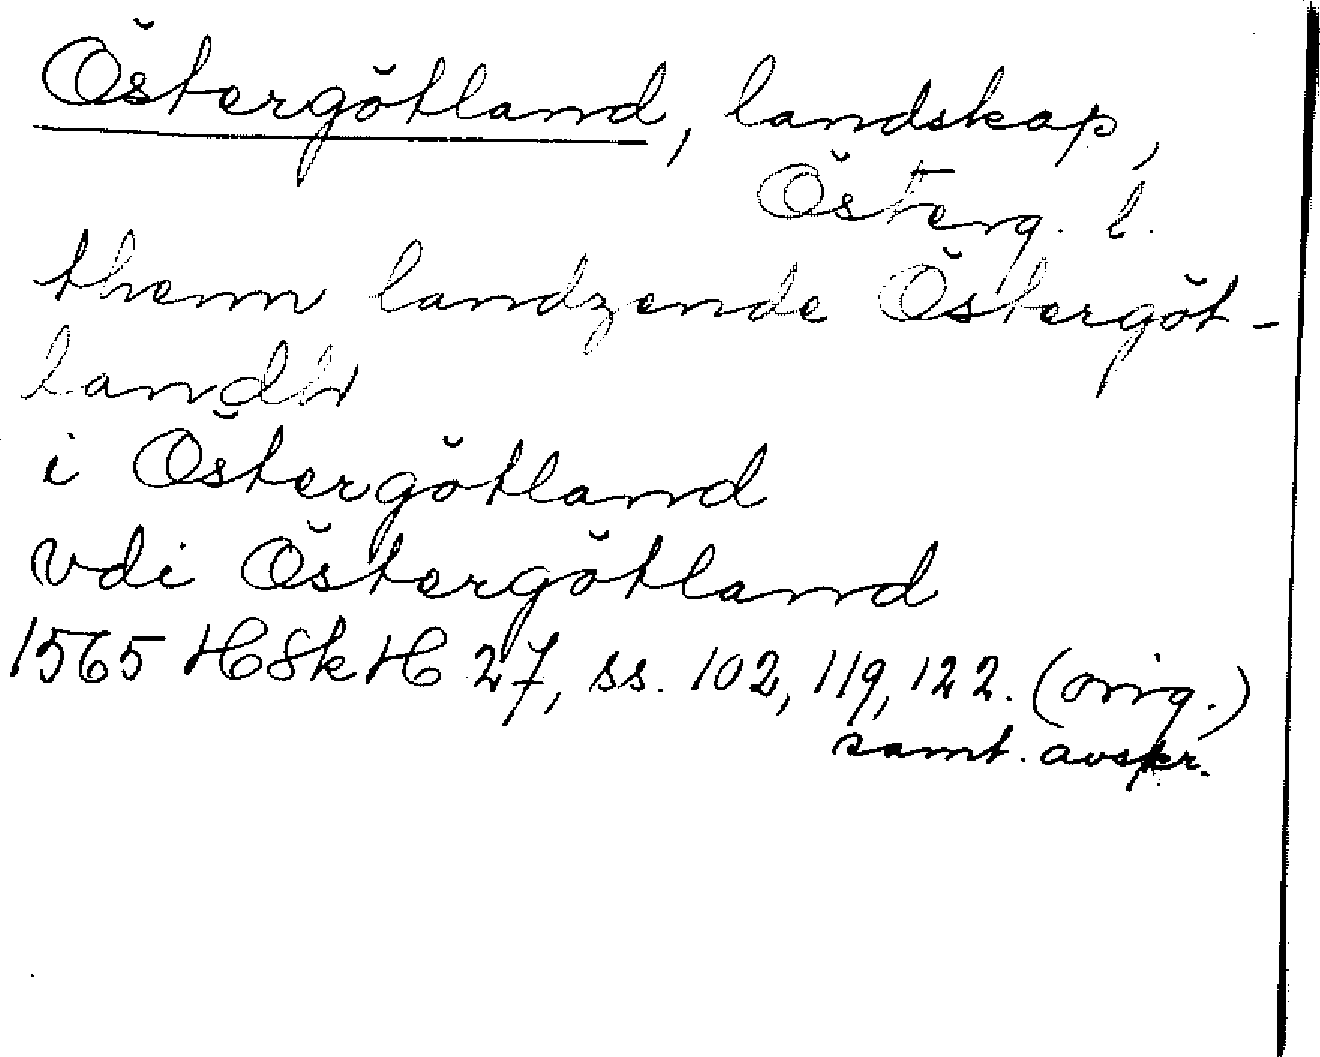 Östergötland, landskap,
Österg. l.
thenn landzende Östergöt-
landh
i Östergötland
vdi Östergötland
1565 HSkH 27, ss. 102, 119, 122. (orig.)
samt. avskr.